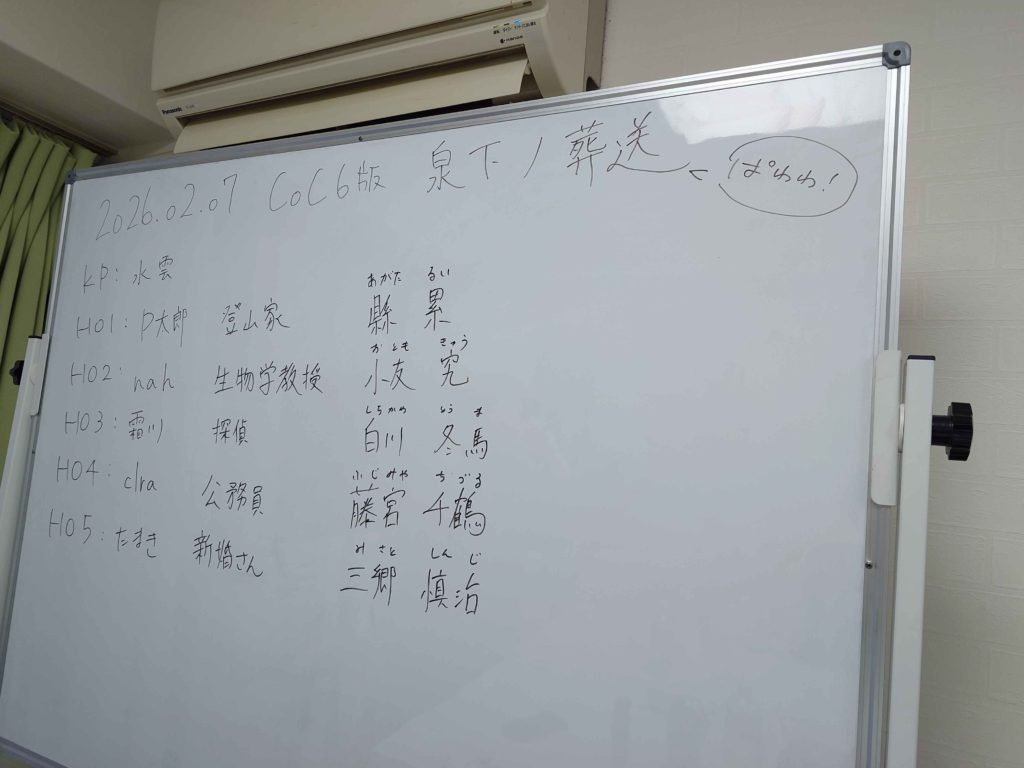 Panasonic
nanoe
2026.02.07 CoC6版 泉下ノ葬送
ぱゎゎ!
KP: 水雲
HO1: P太郎 登山家 縣 累
あがた るい
HO2: nah 生物学教授 小友 究
おとも きゅう
HO3: 霜川 探偵 白川 冬馬
しらかわ とうま
HO4: clra 公務員 藤宮 千鶴
ふじみや ちづる
HO5: たまき 新婚さん 三郷 慎治
みさと しんじ